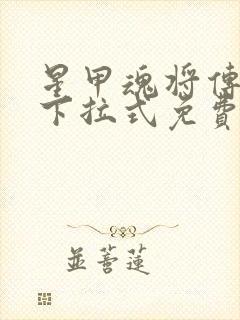 星甲魂将傳
下拉式免費
並蒂蓮